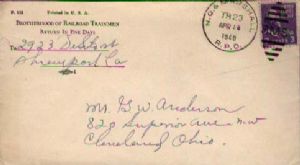 F. 153 Printed in U. S. A.
BROTHERHOOD OF RAILROAD TRAINMEN
RETURN IN FIVE DAYS
To 2923
Shreveport La
N.O. &
TR 23
APR 18
1940
R.P.O.
Mr. G W Anderson
820 Superior Ave N.W
Cleveland Ohio.